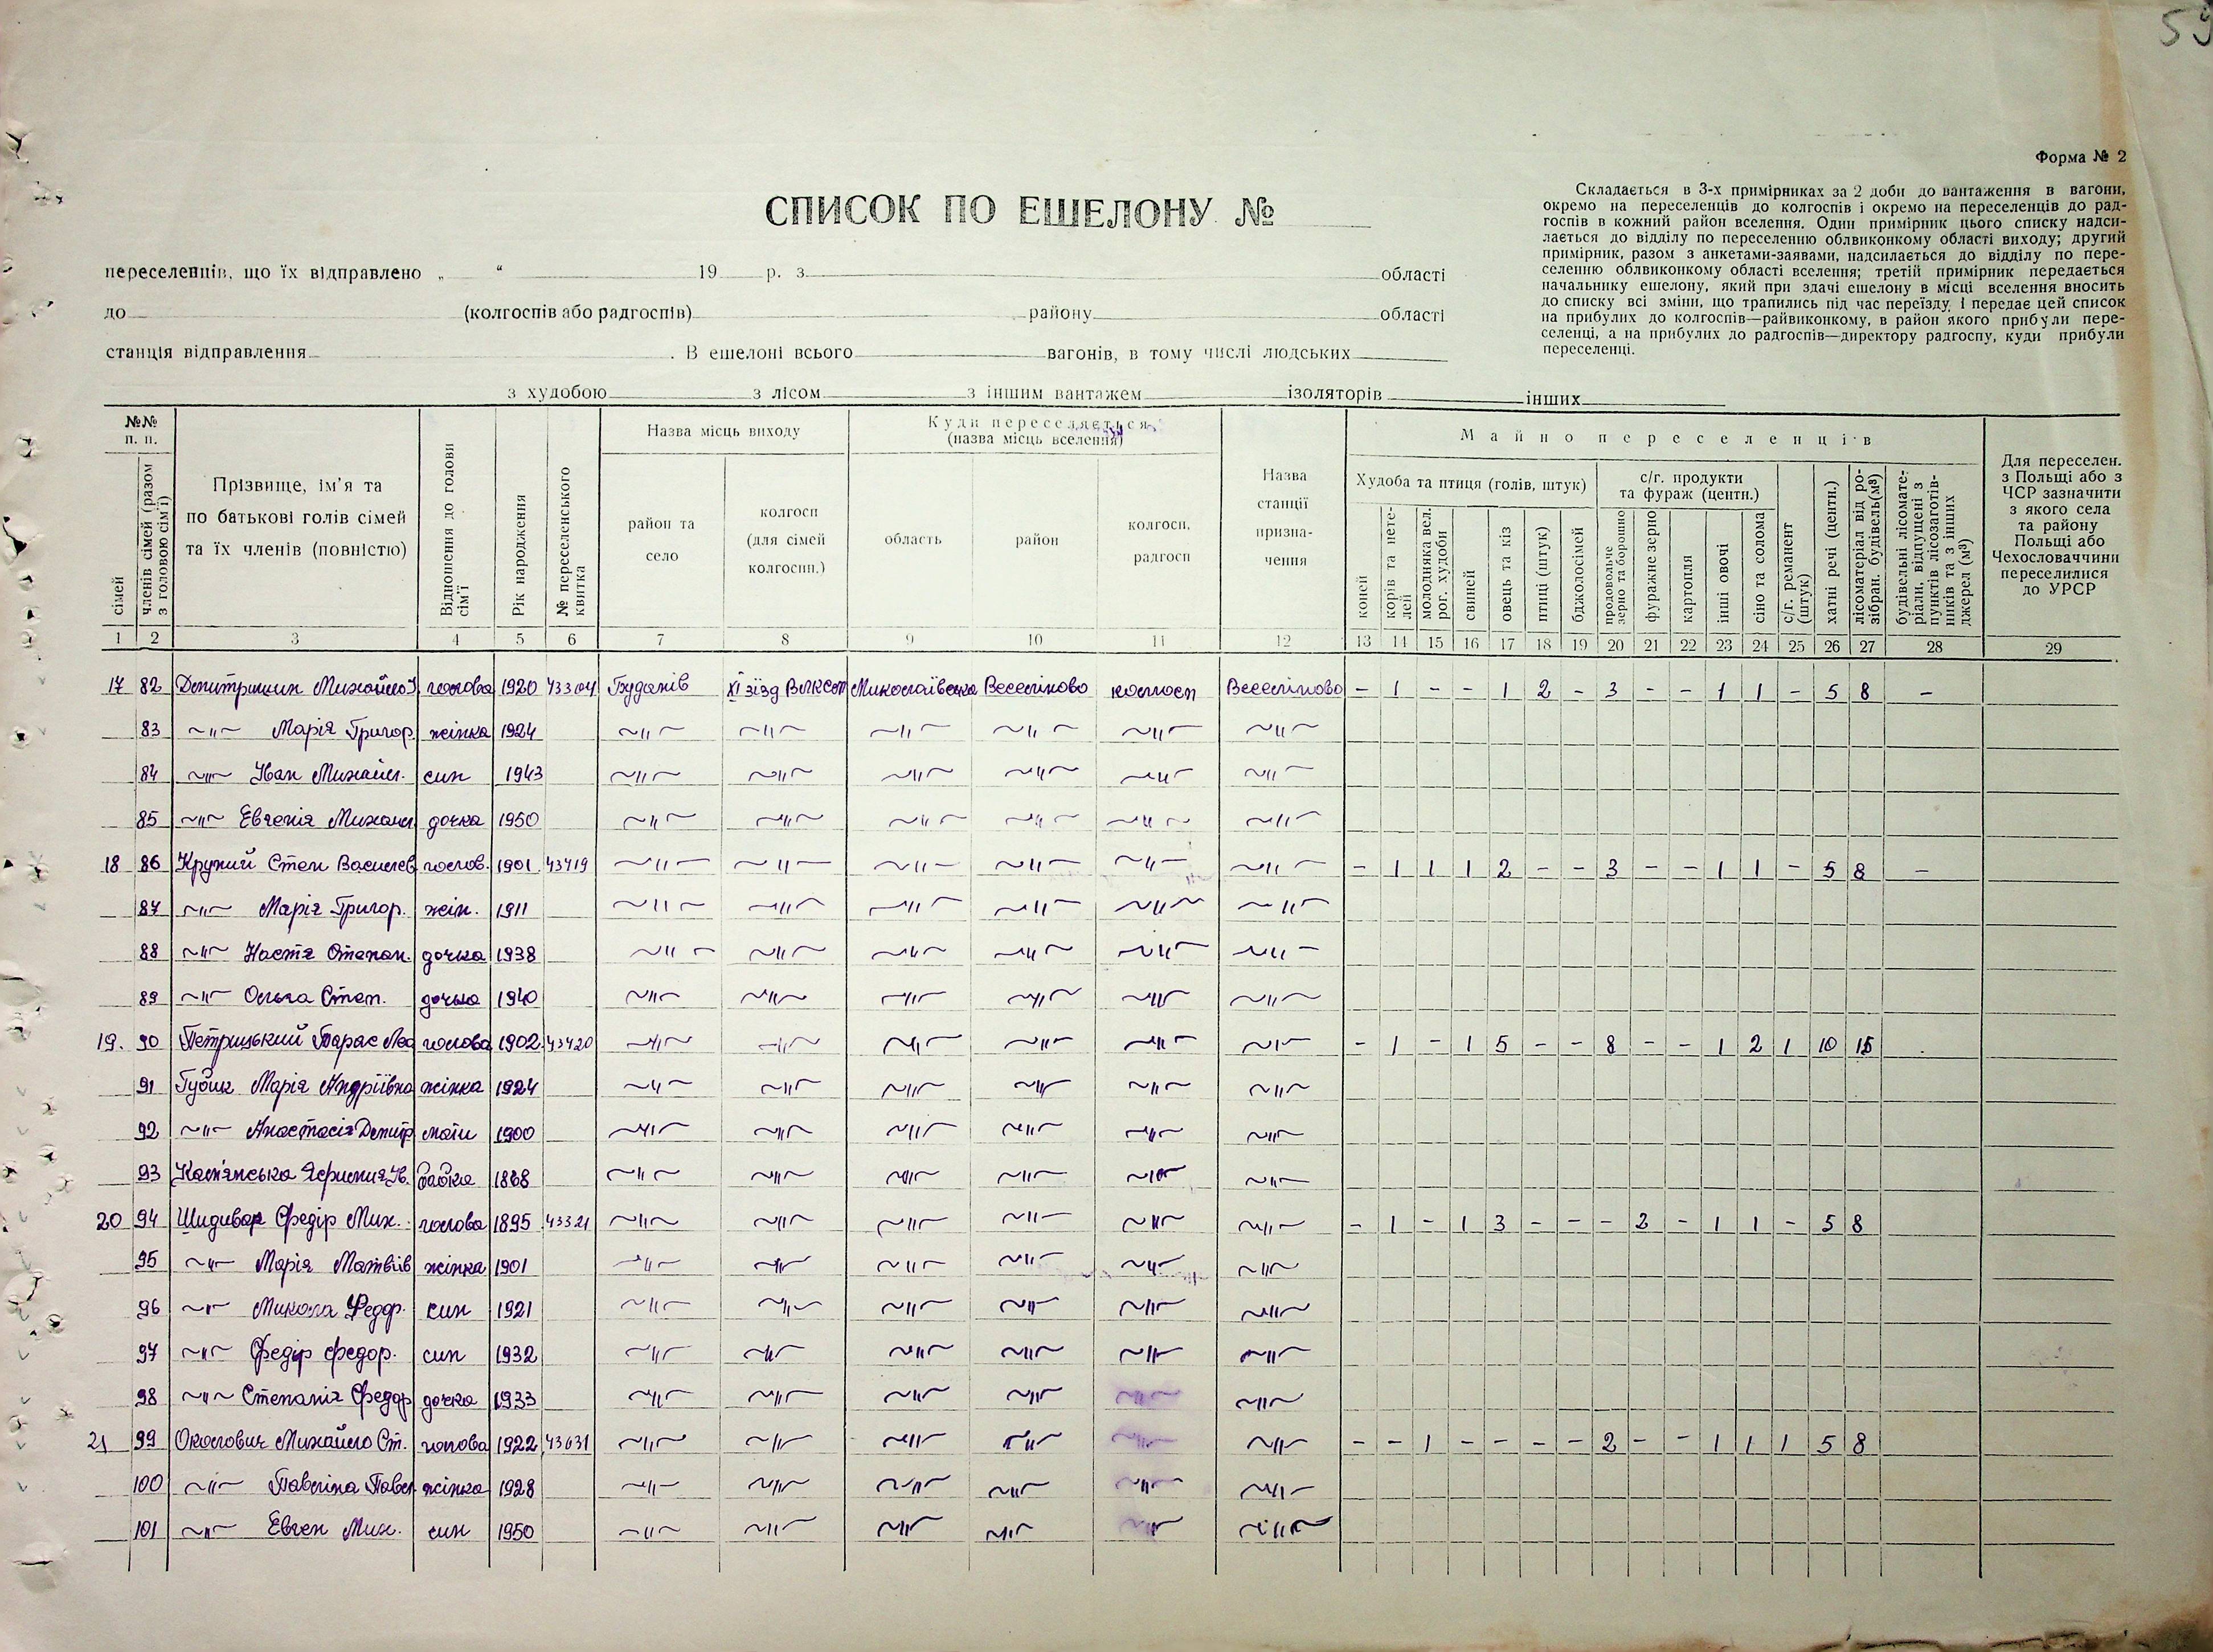 59
Форма № 2
СПИСОК ПО ЕШЕЛОНУ №
Складається в 3-х примірниках за 2 доби до вантаження в вагони,
окремо на переселенців до колгоспів і окремо на переселенців до рад-
госпів в кожний район вселення. Один примірник цього списку надси-
лається до відділу по переселенню облвиконкому області виходу; другий
примірник, разом з анкетами-заявами, надсилається до відділу по пере-
селенню облвиконкому області вселення; третій примірник передається
начальнику ешелону, який при здачі ешелону в місці вселення вносить
до списку всі зміни, що трапились під час переїзду і передає цей список
на прибулих до колгоспів—райвиконкому, в район якого прибули пере-
селенці, а на прибулих до радгоспів—директору радгоспу, куди прибули
переселенці.
переселенців, що їх відправлено „ “ 19 р. з області
до (колгоспів або радгоспів) району області
станція відправлення . В ешелоні всього вагонів, в тому числі людських
з худобою з лісом з іншим вантажем ізоляторів інших
№№ п. п.
сімей
членів сімей (разом з головою сім'ї)
Прізвище, ім'я та
по батькові голів сімей
та їх членів (повністю)
Відношення до голови сім'ї
Рік народження
№ переселенського квитка
Назва місць виходу
район та село
колгосп (для сімей колгоспн.)
Куди переселяється
(назва місць вселення)
область
район
колгосп, радгосп
Назва станції призна-
чення
Майно переселенців
Худоба та птиця (голів, штук)
коней
корів та нете-
лей
молодняка вел. рог. худоби
свиней
овець та кіз
птиці (штук)
бджолосімей
с/г. продукти та фураж (центн.)
продовольче зерно та борошно
фуражне зерно
картопля
інші овочі
сіно та солома
с/г. реманент (штук)
хатні речі (центн.)
лісоматеріал від ро-
зібран. будівель (м³)
будівельні лісомате-
ріали, відпущені з
пунктів лісозаготів-
ників та з інших
джерел (м³)
Для переселен.
з Польщі або з
ЧСР зазначити
з якого села
та району
Польщі або
Чехословаччини
переселилися
до УРСР
1 2 3 4 5 6 7 8 9 10 11 12 13 14 15 16 17 18 19 20 21 22 23 24 25 26 27 28 29
17 82 Дмитришин Михайло голова 1920 43304 Буданів XI зїзд ВЛКСМ Миколаївська Веселіново колгосп Веселіново - 1 - - 1 2 - 3 - - 1 1 - 5 8 -
83 ~"~ Марія Григор. жінка 1924 ~"~ ~"~ ~"~ ~"~ ~"~ ~"~
84 ~"~ Іван Михайл. син 1943 ~"~ ~"~ ~"~ ~"~ ~"~ ~"~
85 ~"~ Евгенія Михайл дочка 1950 ~"~ ~"~ ~"~ ~"~ ~"~ ~"~
18 86 Крупий Степ Василев голов. 1901 43419 ~"~ ~"~ ~"~ ~"~ ~"~ ~"~ - 1 1 1 2 - - 3 - - 1 1 - 5 8 -
87 ~"~ Марія Григор. жін. 1911 ~"~ ~"~ ~"~ ~"~ ~"~ ~"~
88 ~"~ Настя Степан. дочка 1938 ~"~ ~"~ ~"~ ~"~ ~"~ ~"~
89 ~"~ Ольга Степ. дочка 1940 ~"~ ~"~ ~"~ ~"~ ~"~ ~"~
19. 90 Петрицький Тарас Лео голова 1902 43420 ~"~ ~"~ ~"~ ~"~ ~"~ ~"~ - 1 - 1 5 - - 8 - - 1 2 1 10 15
91 Губик Марія Андріївна жінка 1924 ~"~ ~"~ ~"~ ~"~ ~"~ ~"~
92 ~"~ Анастасія Дмитр мати 1900 ~"~ ~"~ ~"~ ~"~ ~"~ ~"~
93 Кам'янська бабка 1868 ~"~ ~"~ ~"~ ~"~ ~"~ ~"~
20 94 Федір Мих. голова 1895 43321 ~"~ ~"~ ~"~ ~"~ ~"~ ~"~ - 1 - 1 3 - - - 2 - 1 1 - 5 8
95 ~"~ Марія Матвіїв жінка 1901 ~"~ ~"~ ~"~ ~"~ ~"~ ~"~
96 ~"~ Микола Федор. син 1921 ~"~ ~"~ ~"~ ~"~ ~"~ ~"~
97 ~"~ Федір Федор. син 1932 ~"~ ~"~ ~"~ ~"~ ~"~ ~"~
98 ~"~ Степанія Федор дочка 1933 ~"~ ~"~ ~"~ ~"~ ~"~ ~"~
21 99 Околович Михайло Ст. голова 1922 43631 ~"~ ~"~ ~"~ ~"~ ~"~ ~"~ - - 1 - - - - 2 - - 1 1 1 5 8
100 ~"~ Павліна Павл жінка 1928 ~"~ ~"~ ~"~ ~"~ ~"~ ~"~
101 ~"~ Евген Мих. син 1950 ~"~ ~"~ ~"~ ~"~ ~"~ ~"~